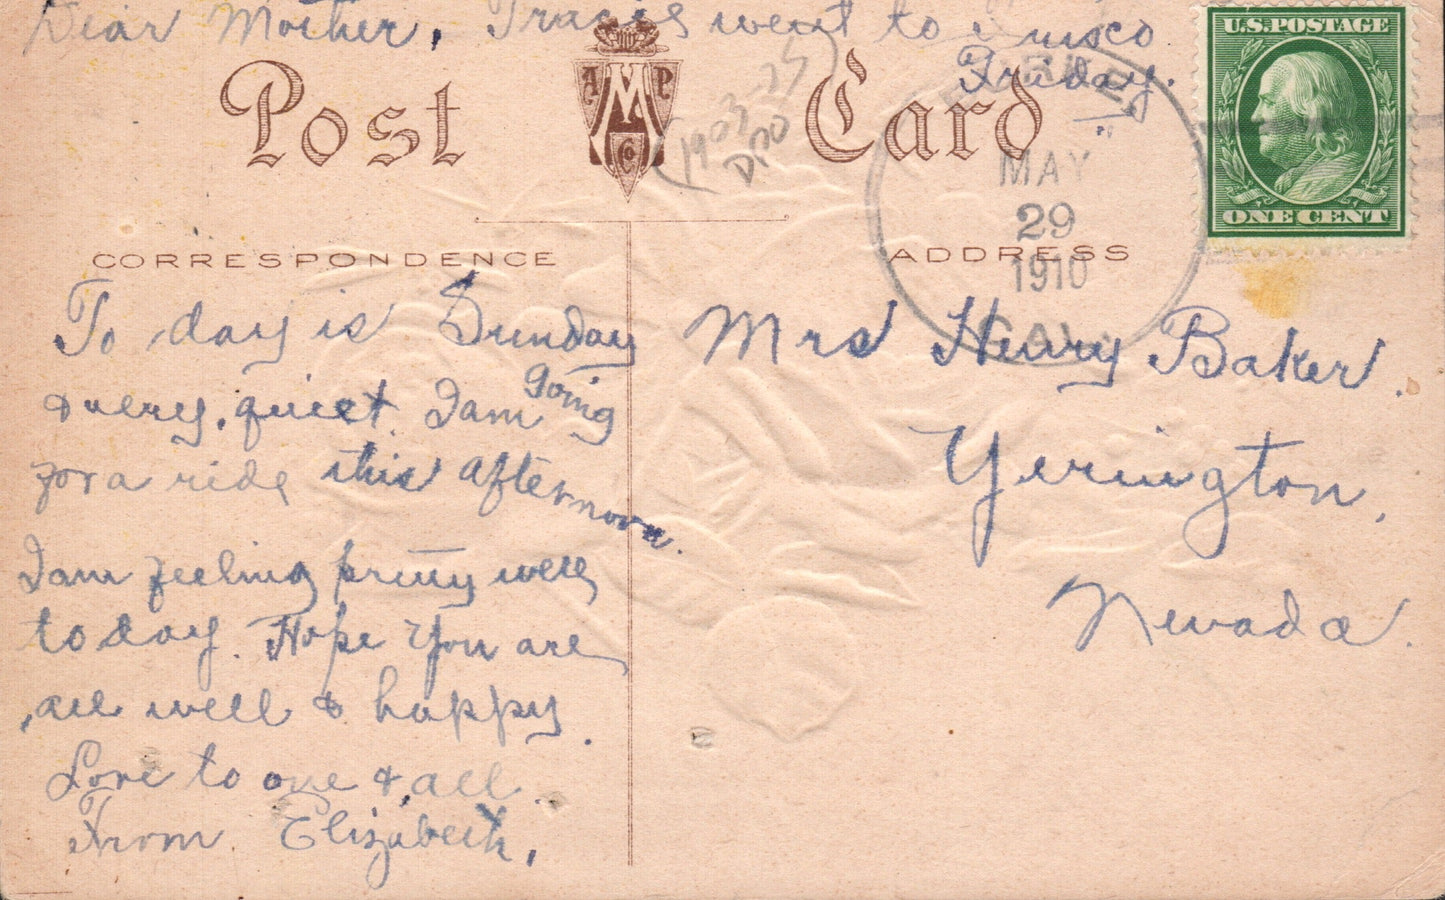 Dear Mother, Tracis went to Frisco
Friday.
Post Card
A M P
Co
(1903-25)
DPO
U.S. POSTAGE
ONE CENT
MAY
29
1910
CAL.
CORRESPONDENCE
To day is Sunday
& very, quiet. I am going
for a ride this afternoon.
I am feeling pretty well
to day. Hope you are
all well & happy.
Love to one & all.
From Elizabeth.
ADDRESS
Mrs Henry Baker.
Yerington,
Nevada.